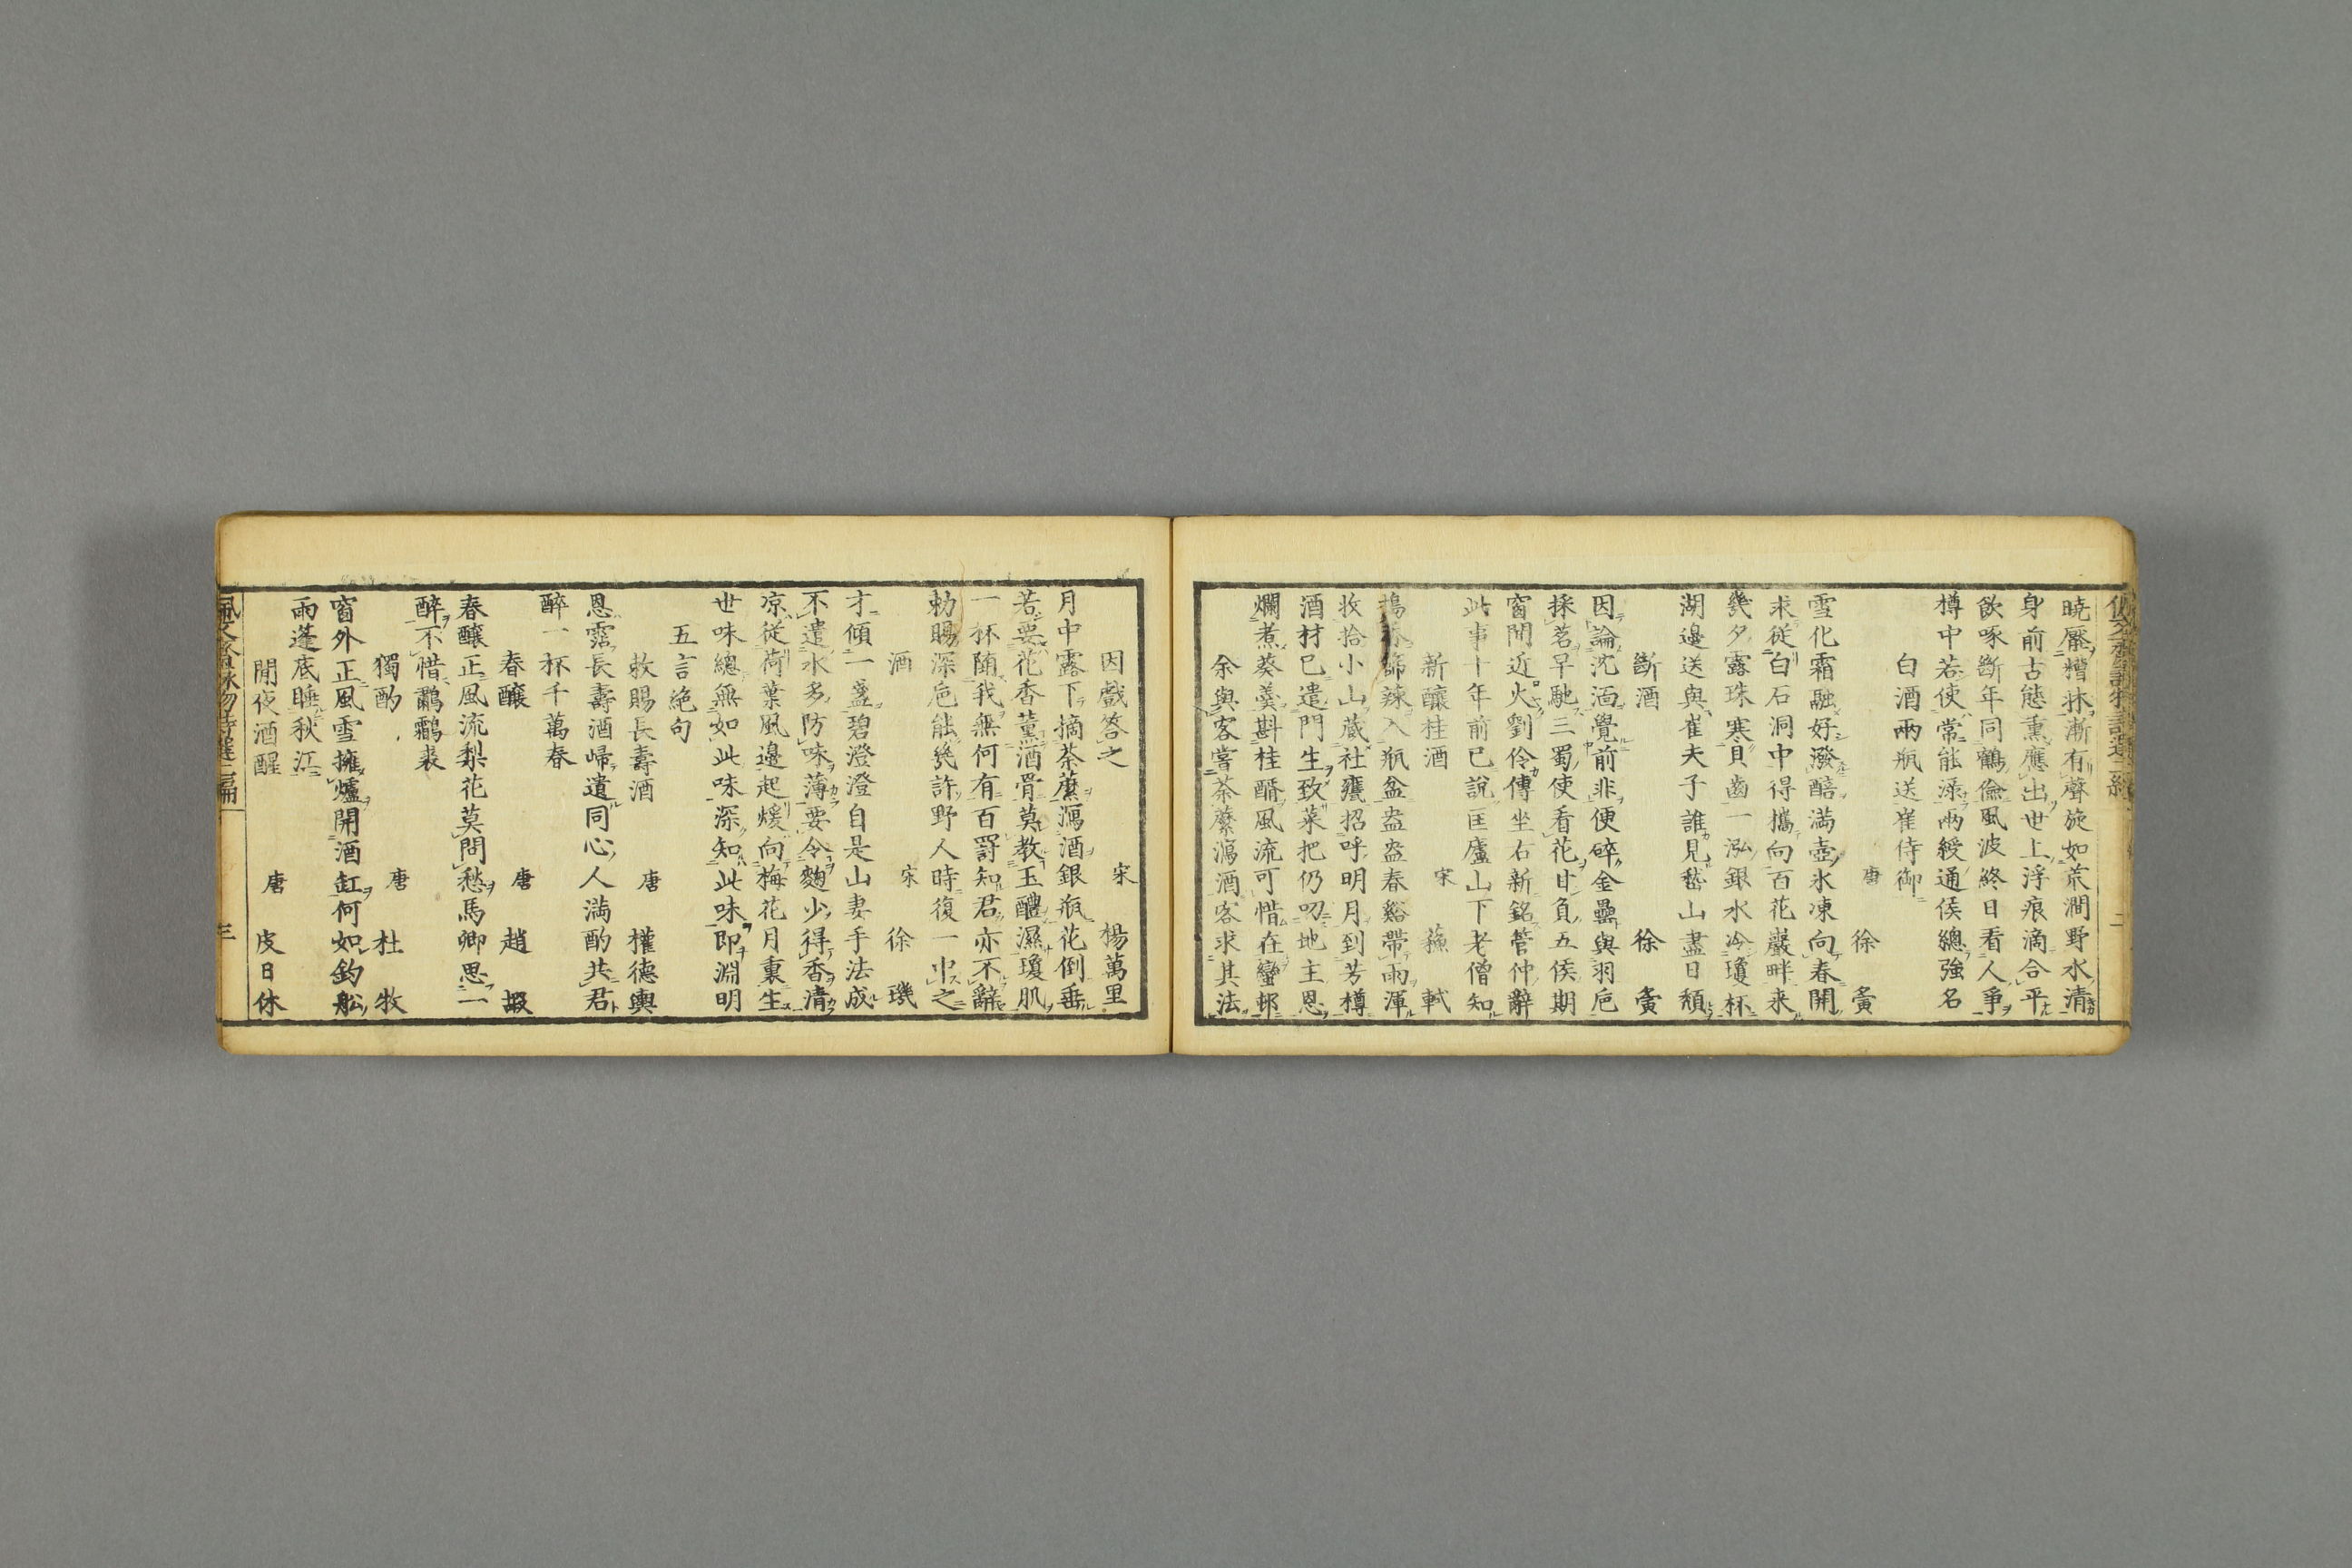 曉壓糟牀漸有聲旋如荒澗野水清
身前古態熏應出世上浮痕滴合平
飲啄斷年同鶴儉風波終日看人爭
樽中若使常能渌兩綬通侯總強名
白酒兩瓶送崔侍御
唐 徐夤
雪化霜融好潑醅滿壺氷凍向春開
求從白石洞中得攜向百花巖畔来
幾夕露珠寒貝齒一泓銀水冷瓊杯
湖邊送與崔夫子誰見嵇山盡日頹
斷酒 徐夤
因論沈湎覺前非便碎金罍與羽巵
採茗早馳三蜀使看花甘負五侯期
窗間近火劉伶傳坐右新銘管仲辭
此事十年前已說匡廬山下老僧知
新釀桂酒
宋 蘓軾
搗香篩辣入瓶盆盎盎春谿帶雨渾
收拾小山藏社甕招呼明月到芳樽
酒材已遣門生致菜把仍叨地主恩
爛煮葵羹斟桂醑風流可惜在蠻邨
余與客嘗荼蘼瀉酒客求其法
因戲答之
宋 楊萬里
月中露下摘荼蘼瀉酒銀瓶花倒垂
若要花香薰酒骨莫教玉醴濕瓊肌
一杯隨我無何有百罰知君亦不辭
勅賜深巵能幾許野人時復一中之
酒 宋 徐璣
才傾一盞碧澄澄自是山妻手法成
不遣水多防味薄要令麴少得香清
凉從荷葉風邊起煖向梅花月裏生
世味總無如此味深知此味即淵明
五言絶句
敕賜長壽酒 唐 權德輿
恩霑長壽酒歸遺同心人滿酌共君
醉一杯千萬春
春釀 唐 趙嘏
春釀正風流梨花莫問愁馬卿思一
醉不惜鸘裘
獨酌 唐 杜牧
窗外正風雪擁爐開酒缸何如釣船
雨蓬底睡秋江
閒夜酒醒 唐 皮日休
佩文齋詠物詩選二編 三